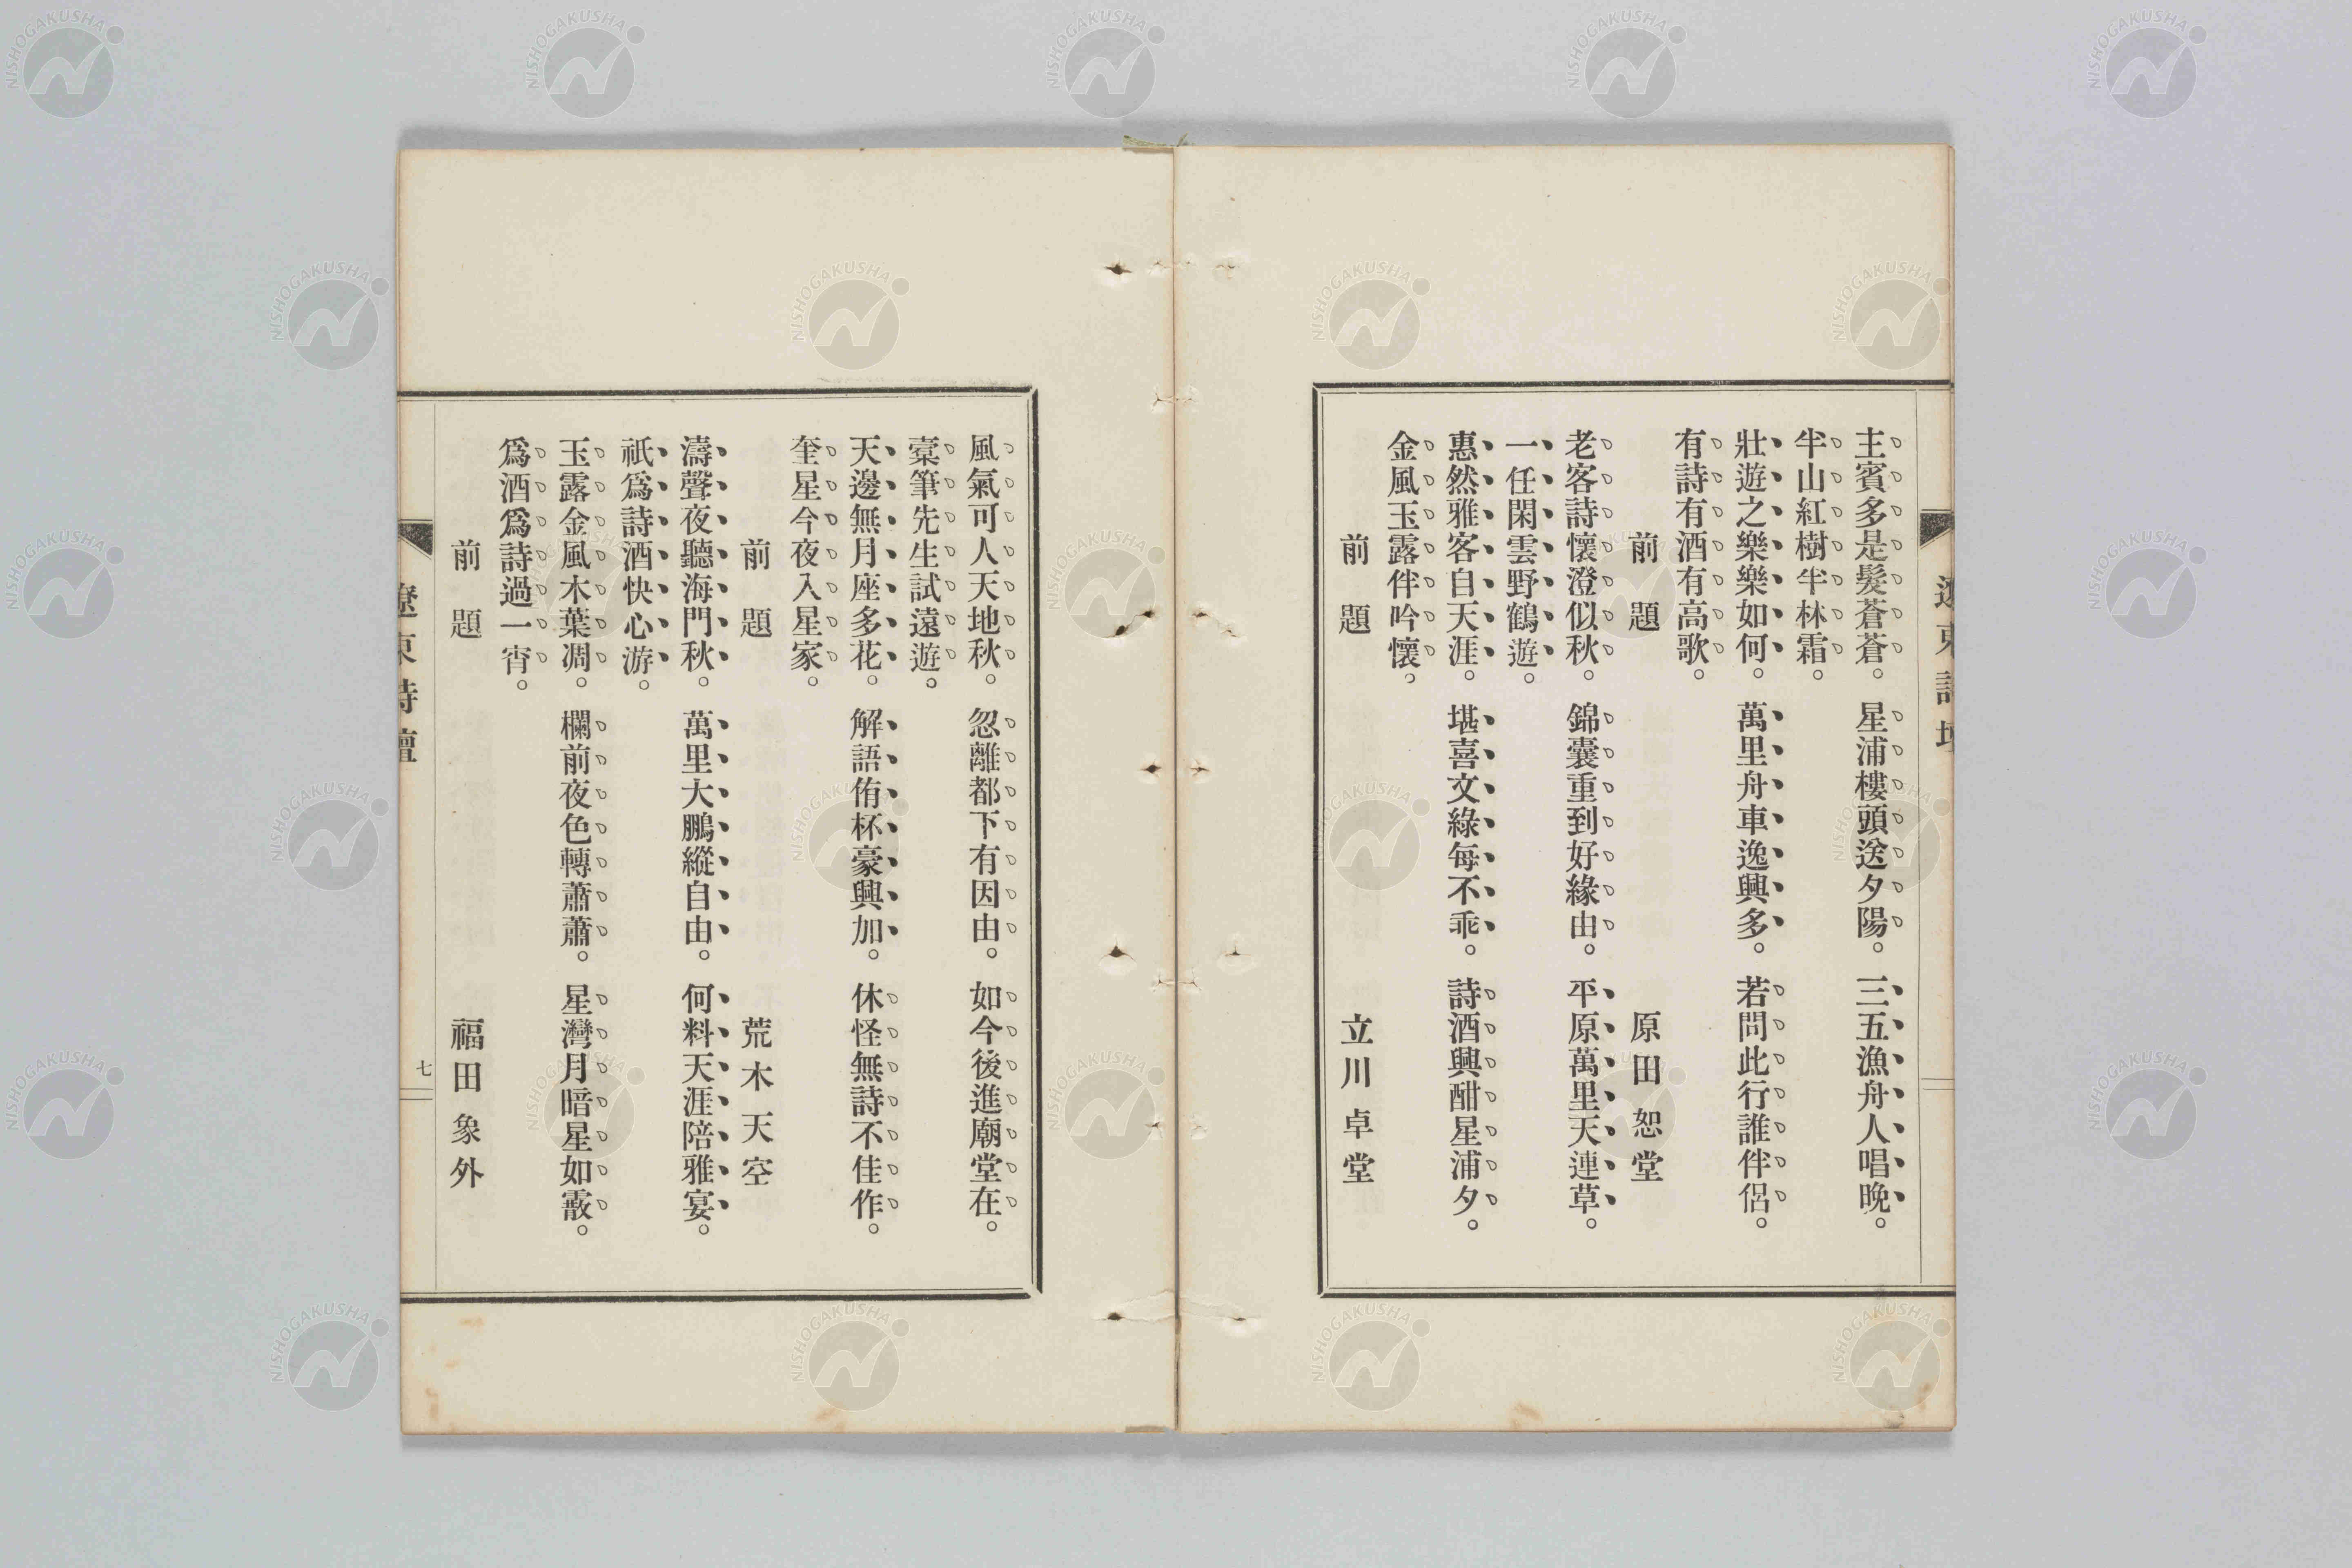 遼東詩壇
主賓多是髮蒼蒼。星浦樓頭送夕陽。三五漁舟人唱晚。
半山紅樹半林霜。
壯遊之樂樂如何。萬里舟車逸興多。若問此行誰伴侶。
有詩有酒有高歌。
前題 原田恕堂
老客詩懷澄似秋。錦囊重到好緣由。平原萬里天連草。
一任閑雲野鶴遊。
惠然雅客自天涯。堪喜文綠每不乖。詩酒興酣星浦夕。
金風玉露伴吟懷。
前題 立川卓堂
風氣可人天地秋。忽離都下有因由。如今後進廟堂在。
槖筆先生試遠遊。
天邊無月座多花。解語侑杯豪興加。休怪無詩不佳作。
奎星今夜入星家。
前題 荒木天空
濤聲夜聽海門秋。萬里大鵬縱自由。何料天涯陪雅宴。
祇爲詩酒快心游。
玉露金風木葉凋。欄前夜色轉蕭蕭。星灣月暗星如霰。
爲酒爲詩過一宵。
前題 福田象外
遼東詩壇
七
NISHOGAKUSHA